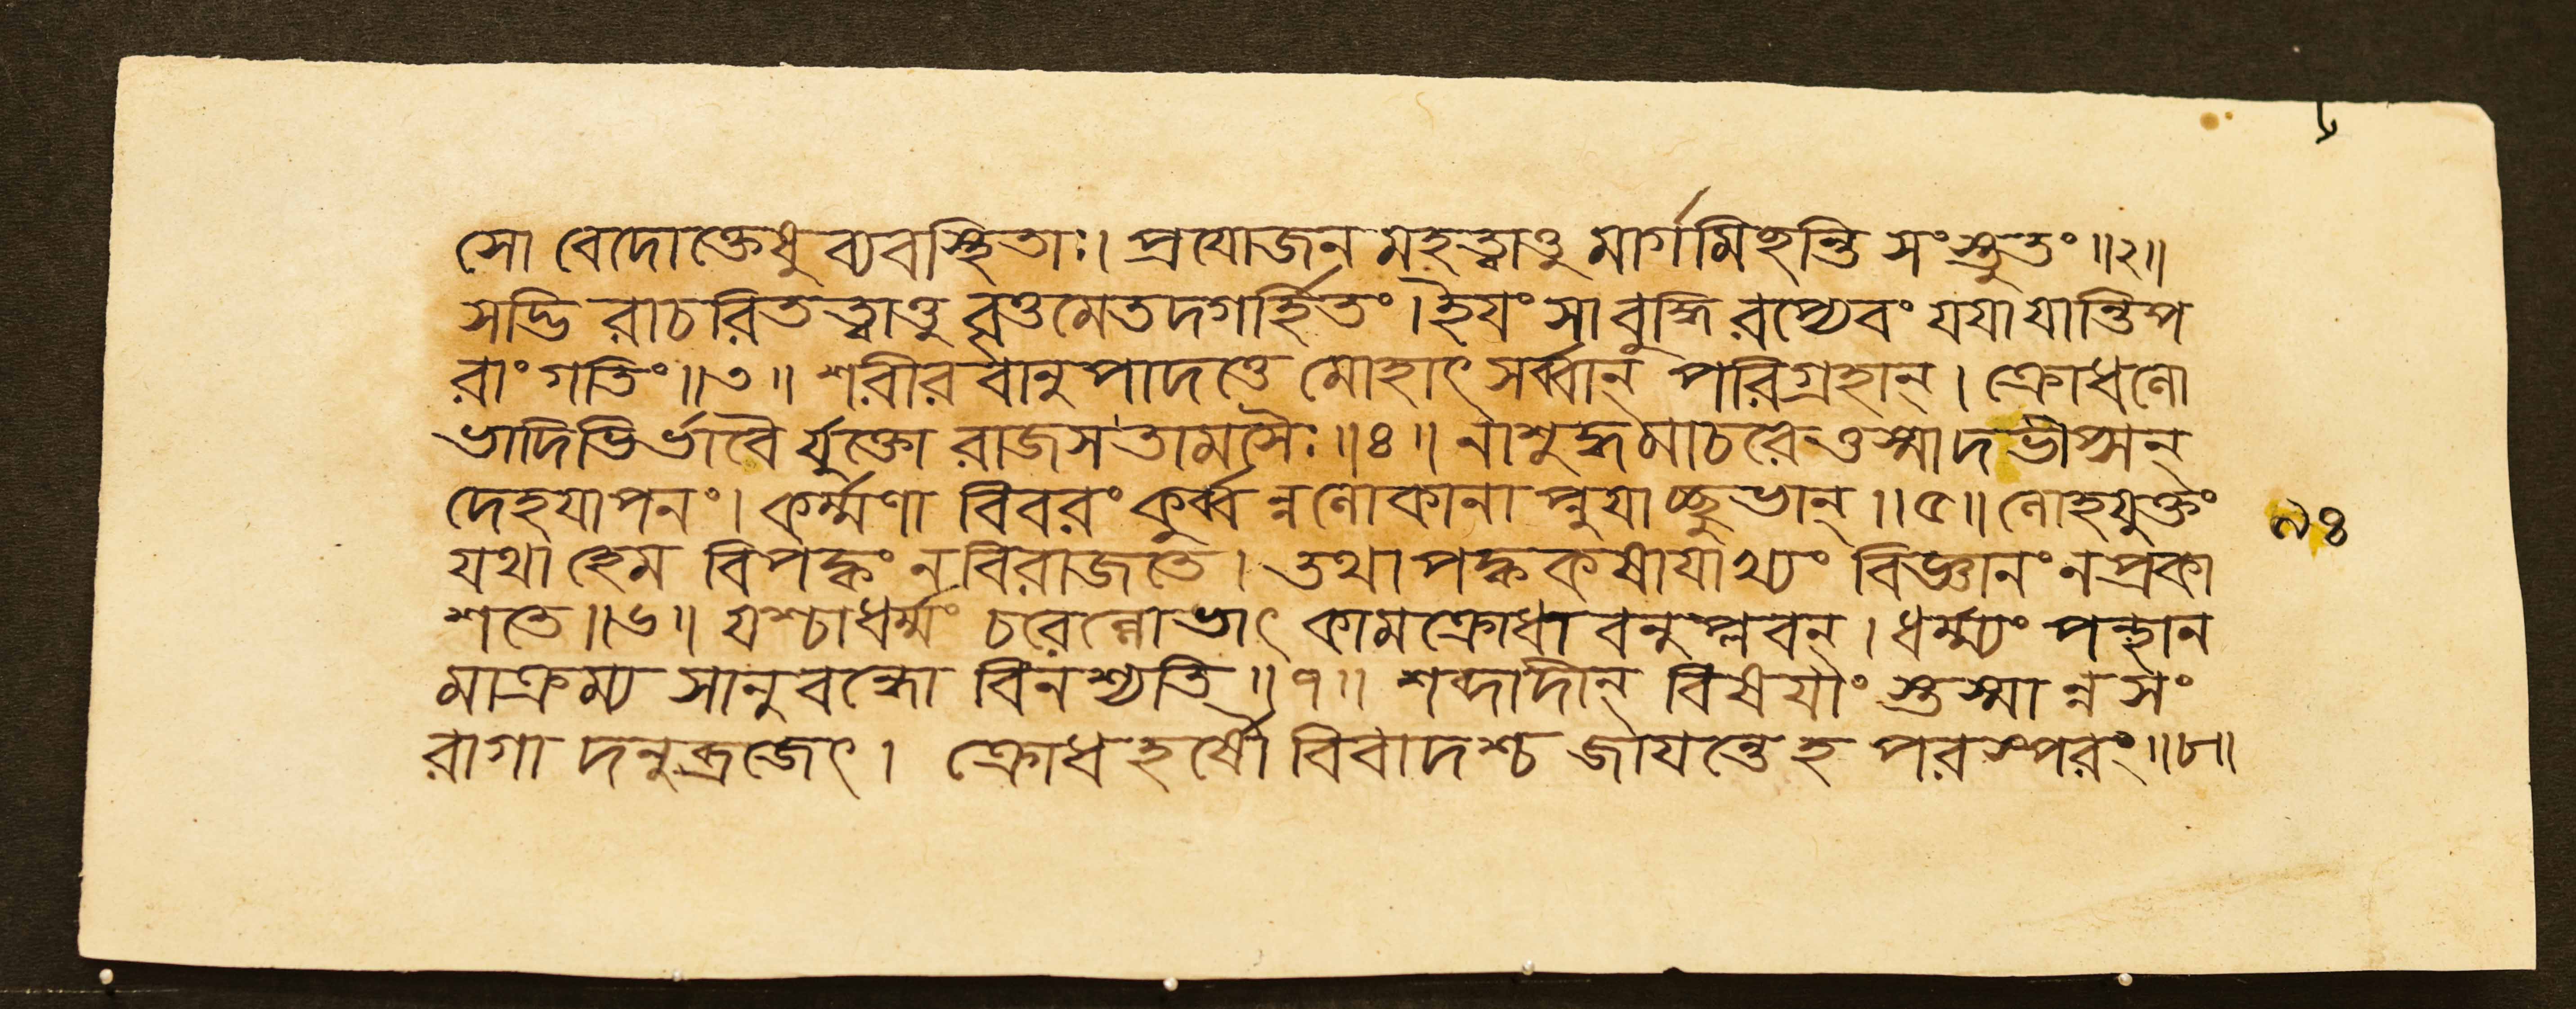 সো বেদোক্তেধু ব্যবস্থিতাঃ। প্রযোজন মহত্ত্বাত্তু মার্গমিহন্তি সংস্তুতং॥২॥
সদ্ভি রাচরিতত্ত্বাত্তু বৃত্তমেতদগর্হিতং। ইযং সা বুদ্ধি রপ্যেবং যযা যান্তি প
রাং গতিং॥৩॥ শরীরবানুপাদত্তে মোহাৎ সর্ব্বান্ পরিগ্রহান্। ক্রোধলো
ভাদিভির্ভাবৈ র্যুক্তো রাজস তামসৈঃ॥৪॥ নাশুদ্ধমাচরেত্তস্মাদভীপ্সন্
দেহযাপনং। কর্ম্মণা বিবরং কুর্ব্ব ন্নলোকানা প্নুযাচ্ছুভান্॥৫॥ লোহযুক্তং
যথা হেম বিপক্কং ন বিরাজতে। তথা পক্ককষাযাখ্যং বিজ্ঞানং ন প্রকা
শতে॥৬॥ যশ্চাধর্ম্মং চরেল্লোভাৎ কামক্রোধা বনুপ্লবন্। ধর্ম্ম্যং পন্থান
মাক্রম্য সানুবন্ধো বিনশ্যতি॥৭॥ শব্দাদীন্ বিষযাং স্তস্মা ন্ন সং
রাগা দনুব্রজেৎ। ক্রোধ হর্ষৌ বিষাদশ্চ জাযন্তেহ পরস্পরং॥৮॥